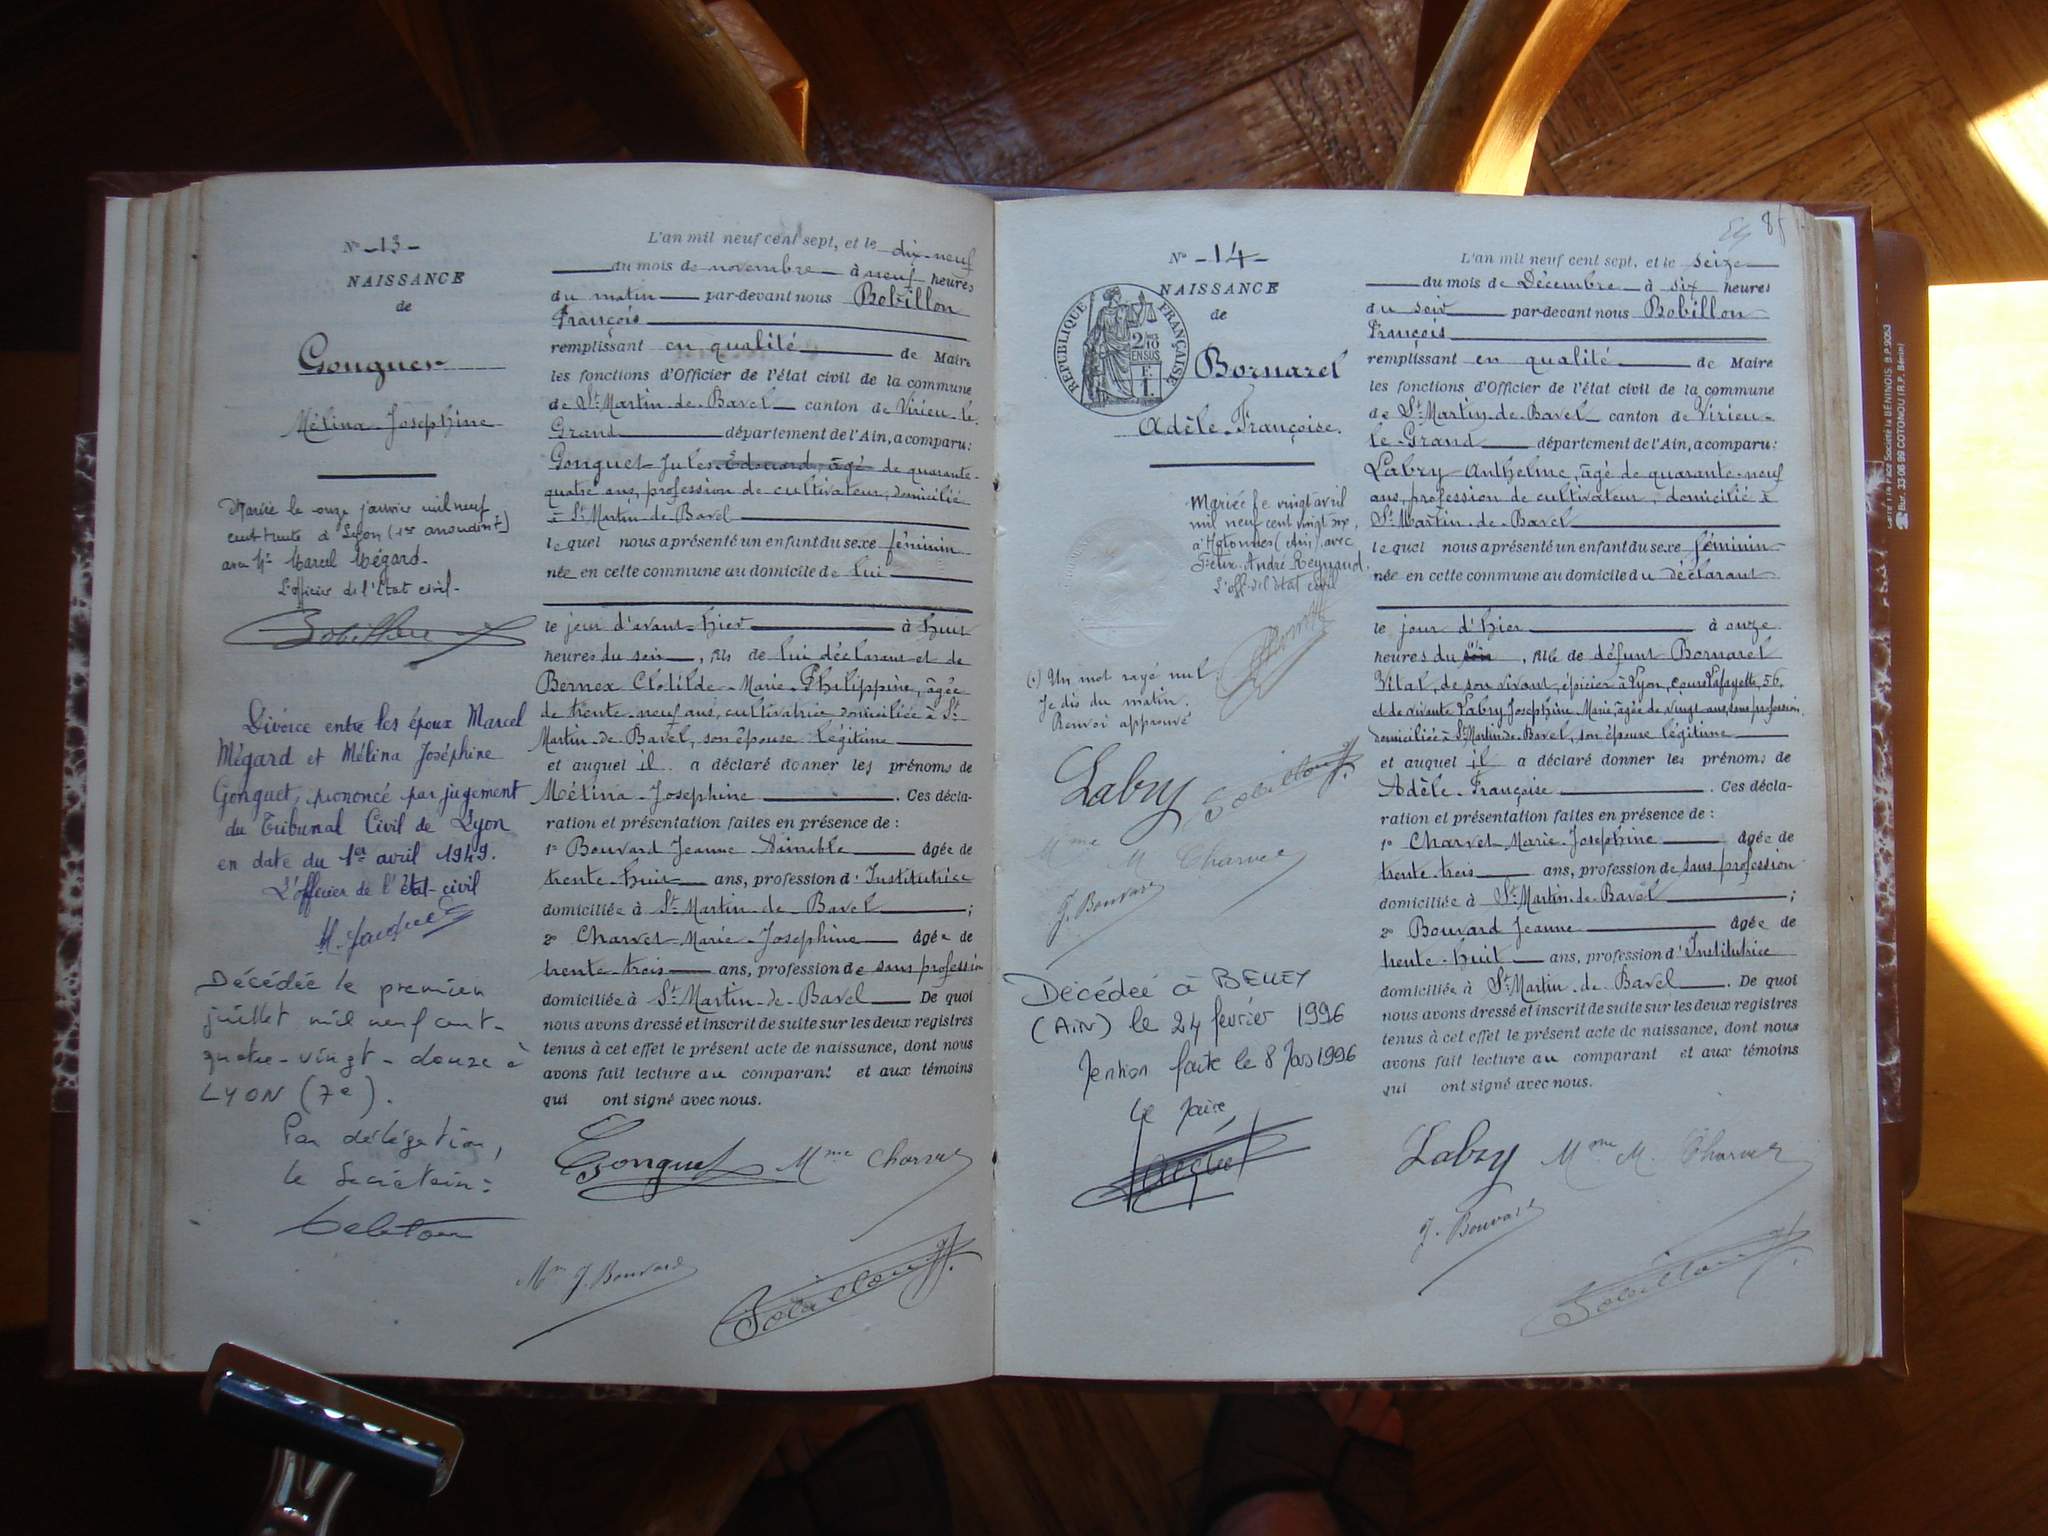 N° 13
NAISSANCE
de
Gonguet
Mélina Joséphine
Mariée le onze janvier mil neuf
cent trente à Lyon (1er arrondint)
avec Mr Marcel Mégard.
L'officier de l'Etat civil.
Bobillon
Divorce entre les époux Marcel
Mégard et Mélina Joséphine
Gonguet, prononcé par jugement
du Tribunal Civil de Lyon
en date du 1er avril 1949.
L'officier de l'état-civil
Décédée le premier
juillet mil neuf cent-
quatre-vingt-douze à
LYON (7e).
Par délégation,
le Secrétaire:
L'an mil neuf cent sept, et le dix-neuf
du mois de novembre à neuf heures
du matin par-devant nous Bobillon
François
remplissant en qualité de Maire
les fonctions d'Officier de l'état civil de la commune
de St Martin-de-Bavel canton de Virieu-le-
Grand département de l'Ain, a comparu:
Gonguet Jules Edouard, âgé de quarante-
quatre ans, profession de cultivateur, domicilié
à St Martin-de-Bavel
lequel nous a présenté un enfant du sexe féminin
née en cette commune au domicile de lui
le jour d'avant-hier à huit
heures du soir, fils de lui déclarant et de
Bernex Clotilde-Marie-Philippine, âgée
de trente-neuf ans, cultivatrice domiciliée à St
Martin-de-Bavel, son épouse légitime
et auquel il a déclaré donner les prénoms de
Mélina-Joséphine. Ces décla-
ration et présentation faites en présence de:
1° Bouvard Jeanne âgée de
trente-huit ans, profession d'Institutrice
domiciliée à St Martin-de-Bavel;
2° Charvet-Marie-Joséphine âgée de
trente-trois ans, profession de sans profession
domiciliée à St Martin-de-Bavel De quoi
nous avons dressé et inscrit de suite sur les deux registres
tenus à cet effet le présent acte de naissance, dont nous
avons fait lecture au comparant et aux témoins
qui ont signé avec nous.
Gonguet Mme Charvet
Mme J. Bouvard
Bobillon F.
85
N° 14
NAISSANCE
de
RÉPUBLIQUE FRANÇAISE
2/10 EN SUS
F. 1
Bornarel
Adèle-Françoise.
Mariée le vingt avril
mil neuf cent vingt six,
à Hotonnes (Ain), avec
Félix-André Reynaud.
L'off. de l'état civil
(.) Un mot rayé nul
Je dis du matin.
Renvoi approuvé
Labry Bobillon F.
Mme M. Charvet
J. Bouvard
Décédée à BELLEY
(AIN) le 24 février 1996
Mention faite le 8 Mars 1996
Le Maire,
L'an mil neuf cent sept, et le seize
du mois de Décembre à six heures
du soir par-devant nous Bobillon
François
remplissant en qualité de Maire
les fonctions d'Officier de l'état civil de la commune
de St Martin-de-Bavel canton de Virieu-
le-Grand département de l'Ain, a comparu:
Labry Anthelme, âgé de quarante-neuf
ans, profession de cultivateur, domicilié à
St Martin-de-Bavel
lequel nous a présenté un enfant du sexe féminin
née en cette commune au domicile du déclarant
le jour d'hier à onze
heures du soir, fille de défunt Bornarel
Vital, de son vivant, épicier à Lyon, cours Lafayette, 56,
et de vivante Labry Joséphine Marie, âgée de vingt ans, sans profession,
domiciliée à St Martin de-Bavel, son épouse légitime
et auquel il a déclaré donner les prénoms de
Adèle-Françoise. Ces décla-
ration et présentation faites en présence de:
1° Charvet-Marie-Joséphine âgée de
trente-trois ans, profession de sans profession
domiciliée à St Martin-de-Bavel;
2° Bouvard Jeanne âgée de
trente-huit ans, profession d'Institutrice
domiciliée à St Martin-de-Bavel. De quoi
nous avons dressé et inscrit de suite sur les deux registres
tenus à cet effet le présent acte de naissance, dont nous
avons fait lecture au comparant et aux témoins
qui ont signé avec nous.
Labry Mme M. Charvet
J. Bouvard
Bobillon F.
Société la BÉNINOIS. B.P. 9053
Bur. 33 08 99 COTONOU (R.P. Bénin)